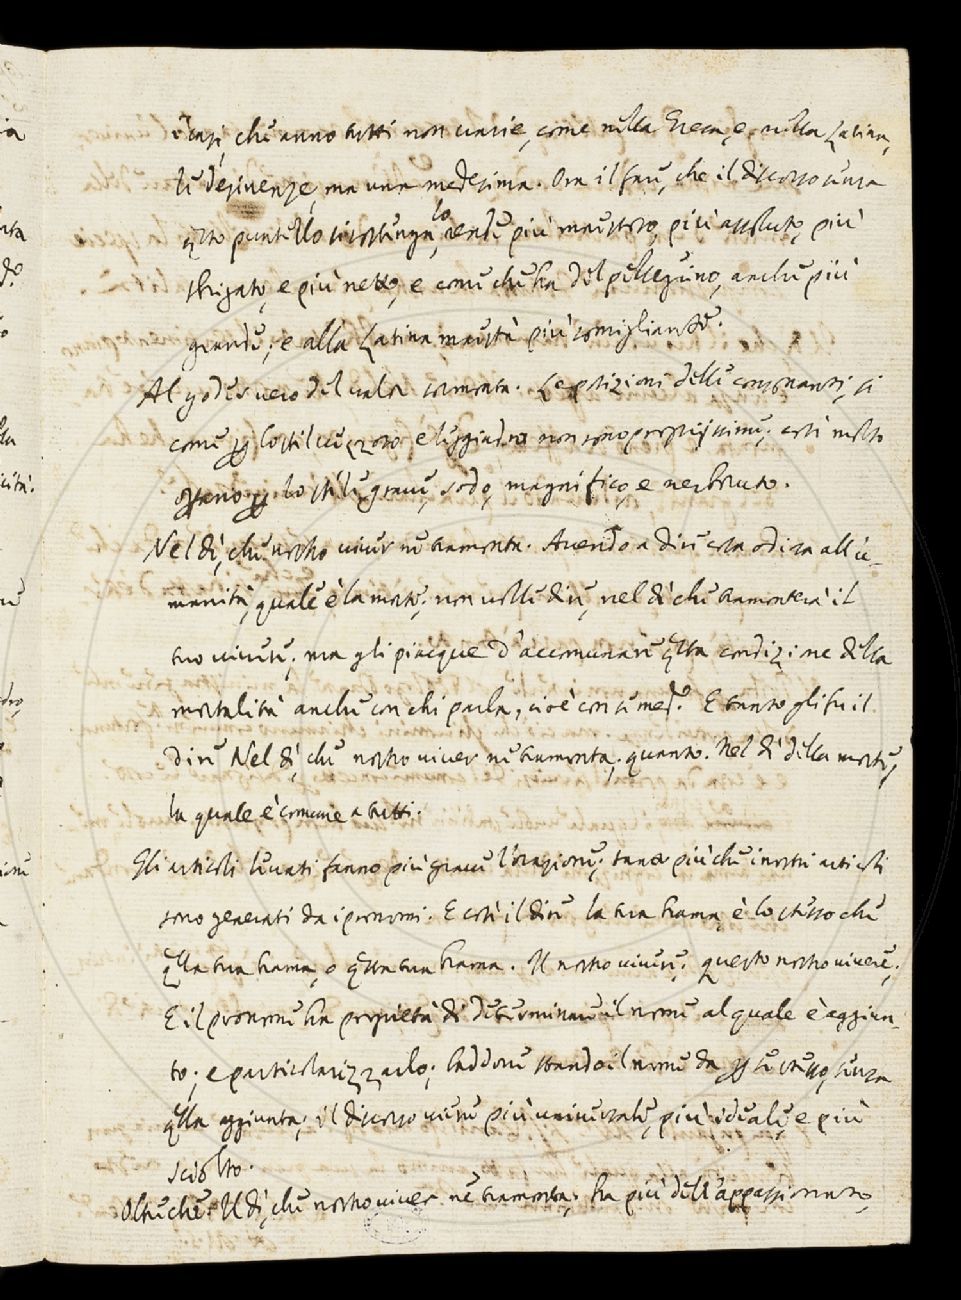 i casi, che anno tutti non varie, come nella Greca, e nella Latina,
le desinenze, ma una medesima. Ora il fare, che il discorso senza
qsto puntello si sostenga, lo rende più maestoso, più assoluto, più
sbrigato, e più netto, e come che ha del pellegrino, anche più
grande, e alla Latina maestà più somigliante.
Al yodes vero del valor sormonta. Le posizioni delle consonanti, sì
come p lo stil vezzoso e leggiadro non sono propriissime; così molto
pstano p lo stile grave, sodo, magnifico, e nerboruto.
Nel dì, che nostro viver ne tramonta. Avendo a dire cosa odiosa all'u-
manità, quale è la morte; non volle dire, nel dì che tramonterà il
tuo vivere; ma gli piacque d'accomunare qlla condizione della
mortalità anche con chi parla, cioè con se med.o E tanto gli fu il
dire Nel dì, che nostro viver ne tramonta, quanto. Nel dì della morte,
la quale è comune a tutti.
Gli articoli levati fanno più grave l'orazione; tanto più che i nostri articoli
sono generati da i pronomi. E così il dire la tua brama, è lo stesso che
qlla tua brama, o qsta tua brama. Il nostro vivere; questo nostro vivere;
E il pronome ha proprietà di determinare il nome al quale è aggiun-
to; e particolarizzarlo; laddove stando il nome da p se stesso, senza
qlla aggiunta; il discorso viene più universale, più ideale, e più
sciolto.
Oltreche: Il dì, che nostro viver ne tramonta; ha più dell'appassionato,